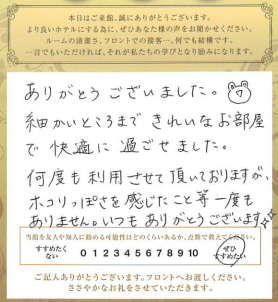 本日はご来館、誠にありがとうございます。
より良いホテルにする為に、ぜひあなた様の声をお聞かせください。
ルームの清潔さ、フロントでの接客…、何でも結構です。
一言でもいただければ、それが私たちの学びとなり励みになります。
ありがとうございました。
細かいところまできれいなお部屋
で快適に過ごせました。
何度も利用させて頂いておりますが、
ホコリっぽさを感じたこと等一度も
ありません。いつもありがとうございます
当館を友人や知人に勧める可能性はどのくらいあるか、点数で教えてください。
すすめたくない 0 1 2 3 4 5 6 7 8 9 10 ぜひすすめたい
ご記入ありがとうございます。フロントへお渡しください。
ささやかなお礼をさせていただきます。